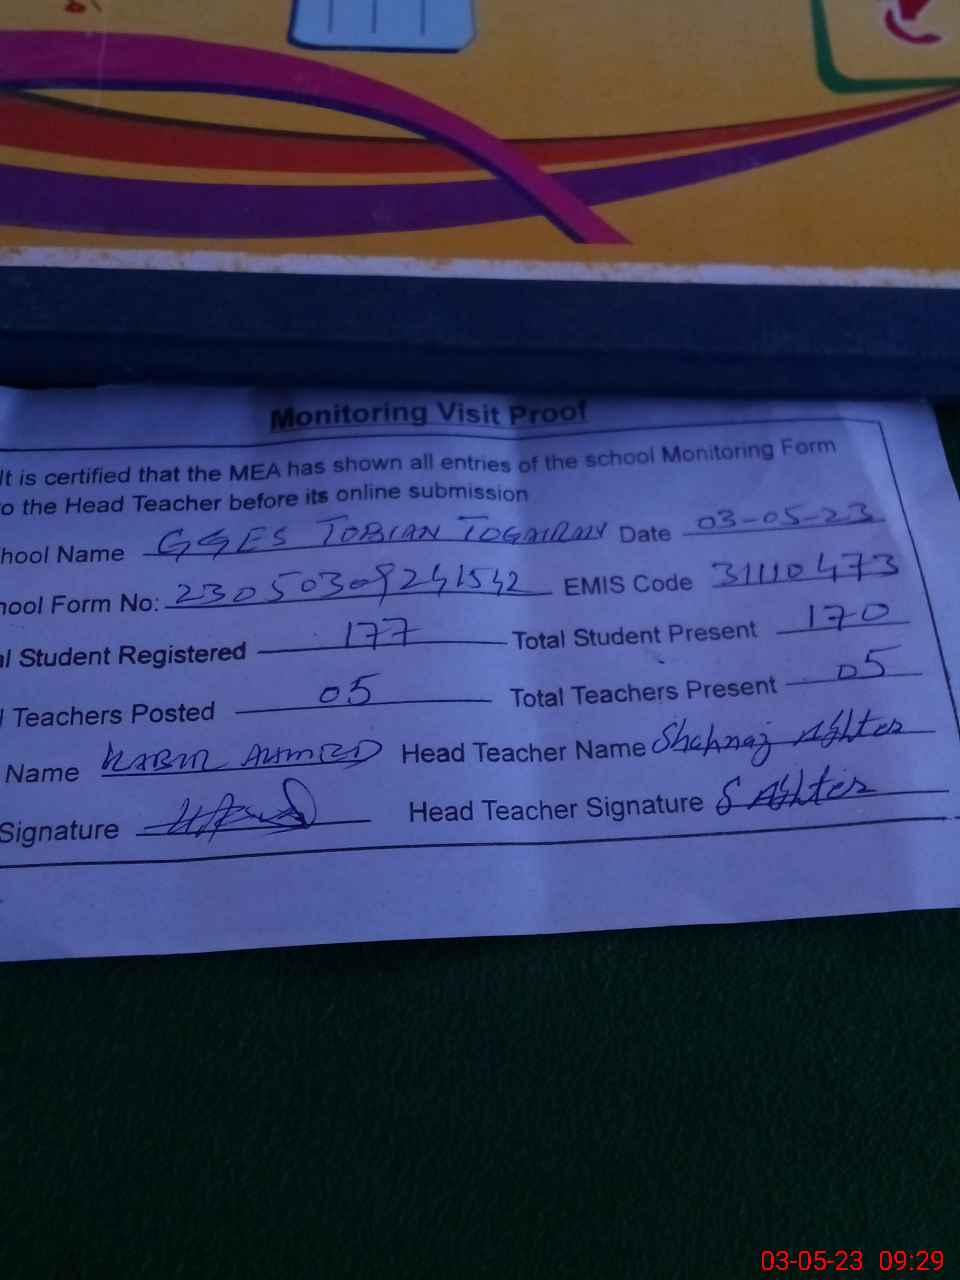 Monitoring Visit Proof
It is certified that the MEA has shown all entries of the school Monitoring Form
o the Head Teacher before its online submission
hool Name GGES TOBIAN Date 03-05-23
hool Form No: 23050309241542 EMIS Code 31110473
al Student Registered 177 Total Student Present 170
l Teachers Posted 05 Total Teachers Present 05
Name AHMED Head Teacher Name Shahnaz Akhter
Signature Head Teacher Signature S Akhter
03-05-23 09:29